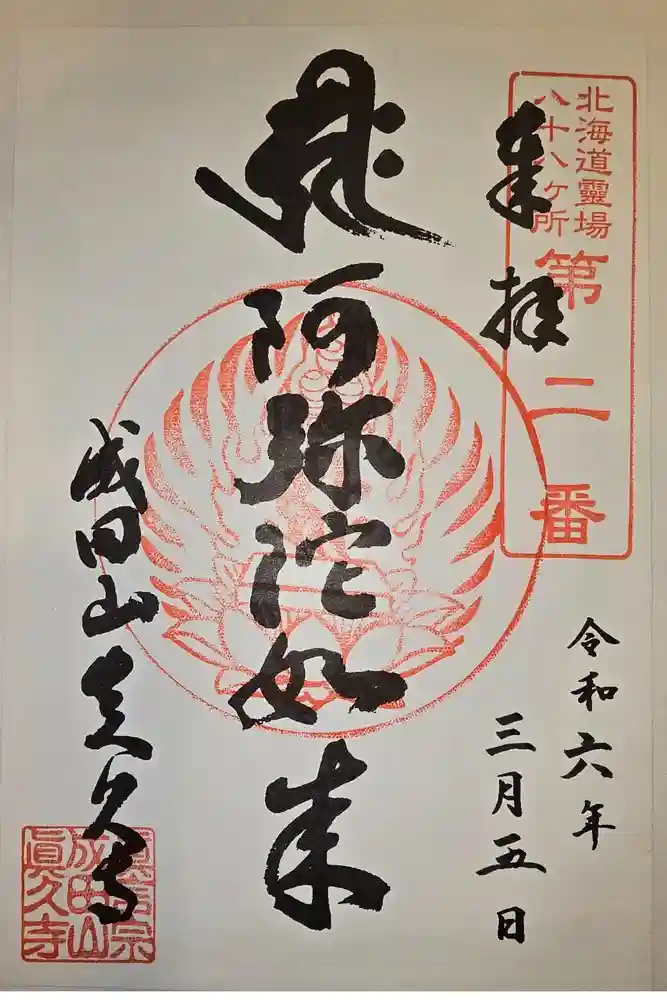 北海道靈場
八十八ヶ所
第二番
奉拝
令和六年
三月五日
阿弥陀如来
成田山真久寺
眞言宗
成田山
眞久寺